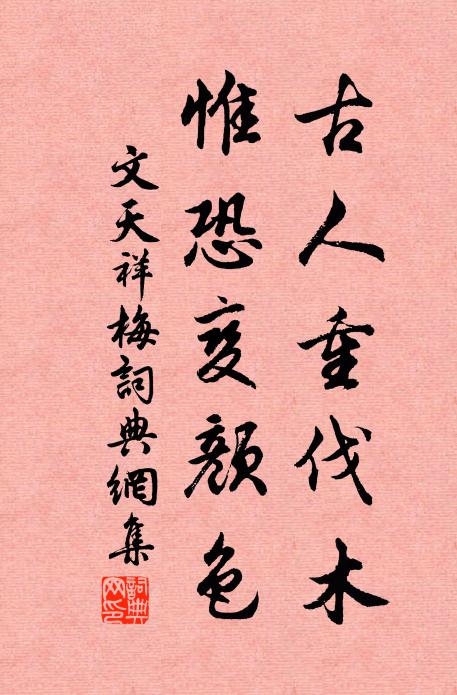 古人重伐木
惟恐变颜色
文天祥梅詞典網集
詞典网印